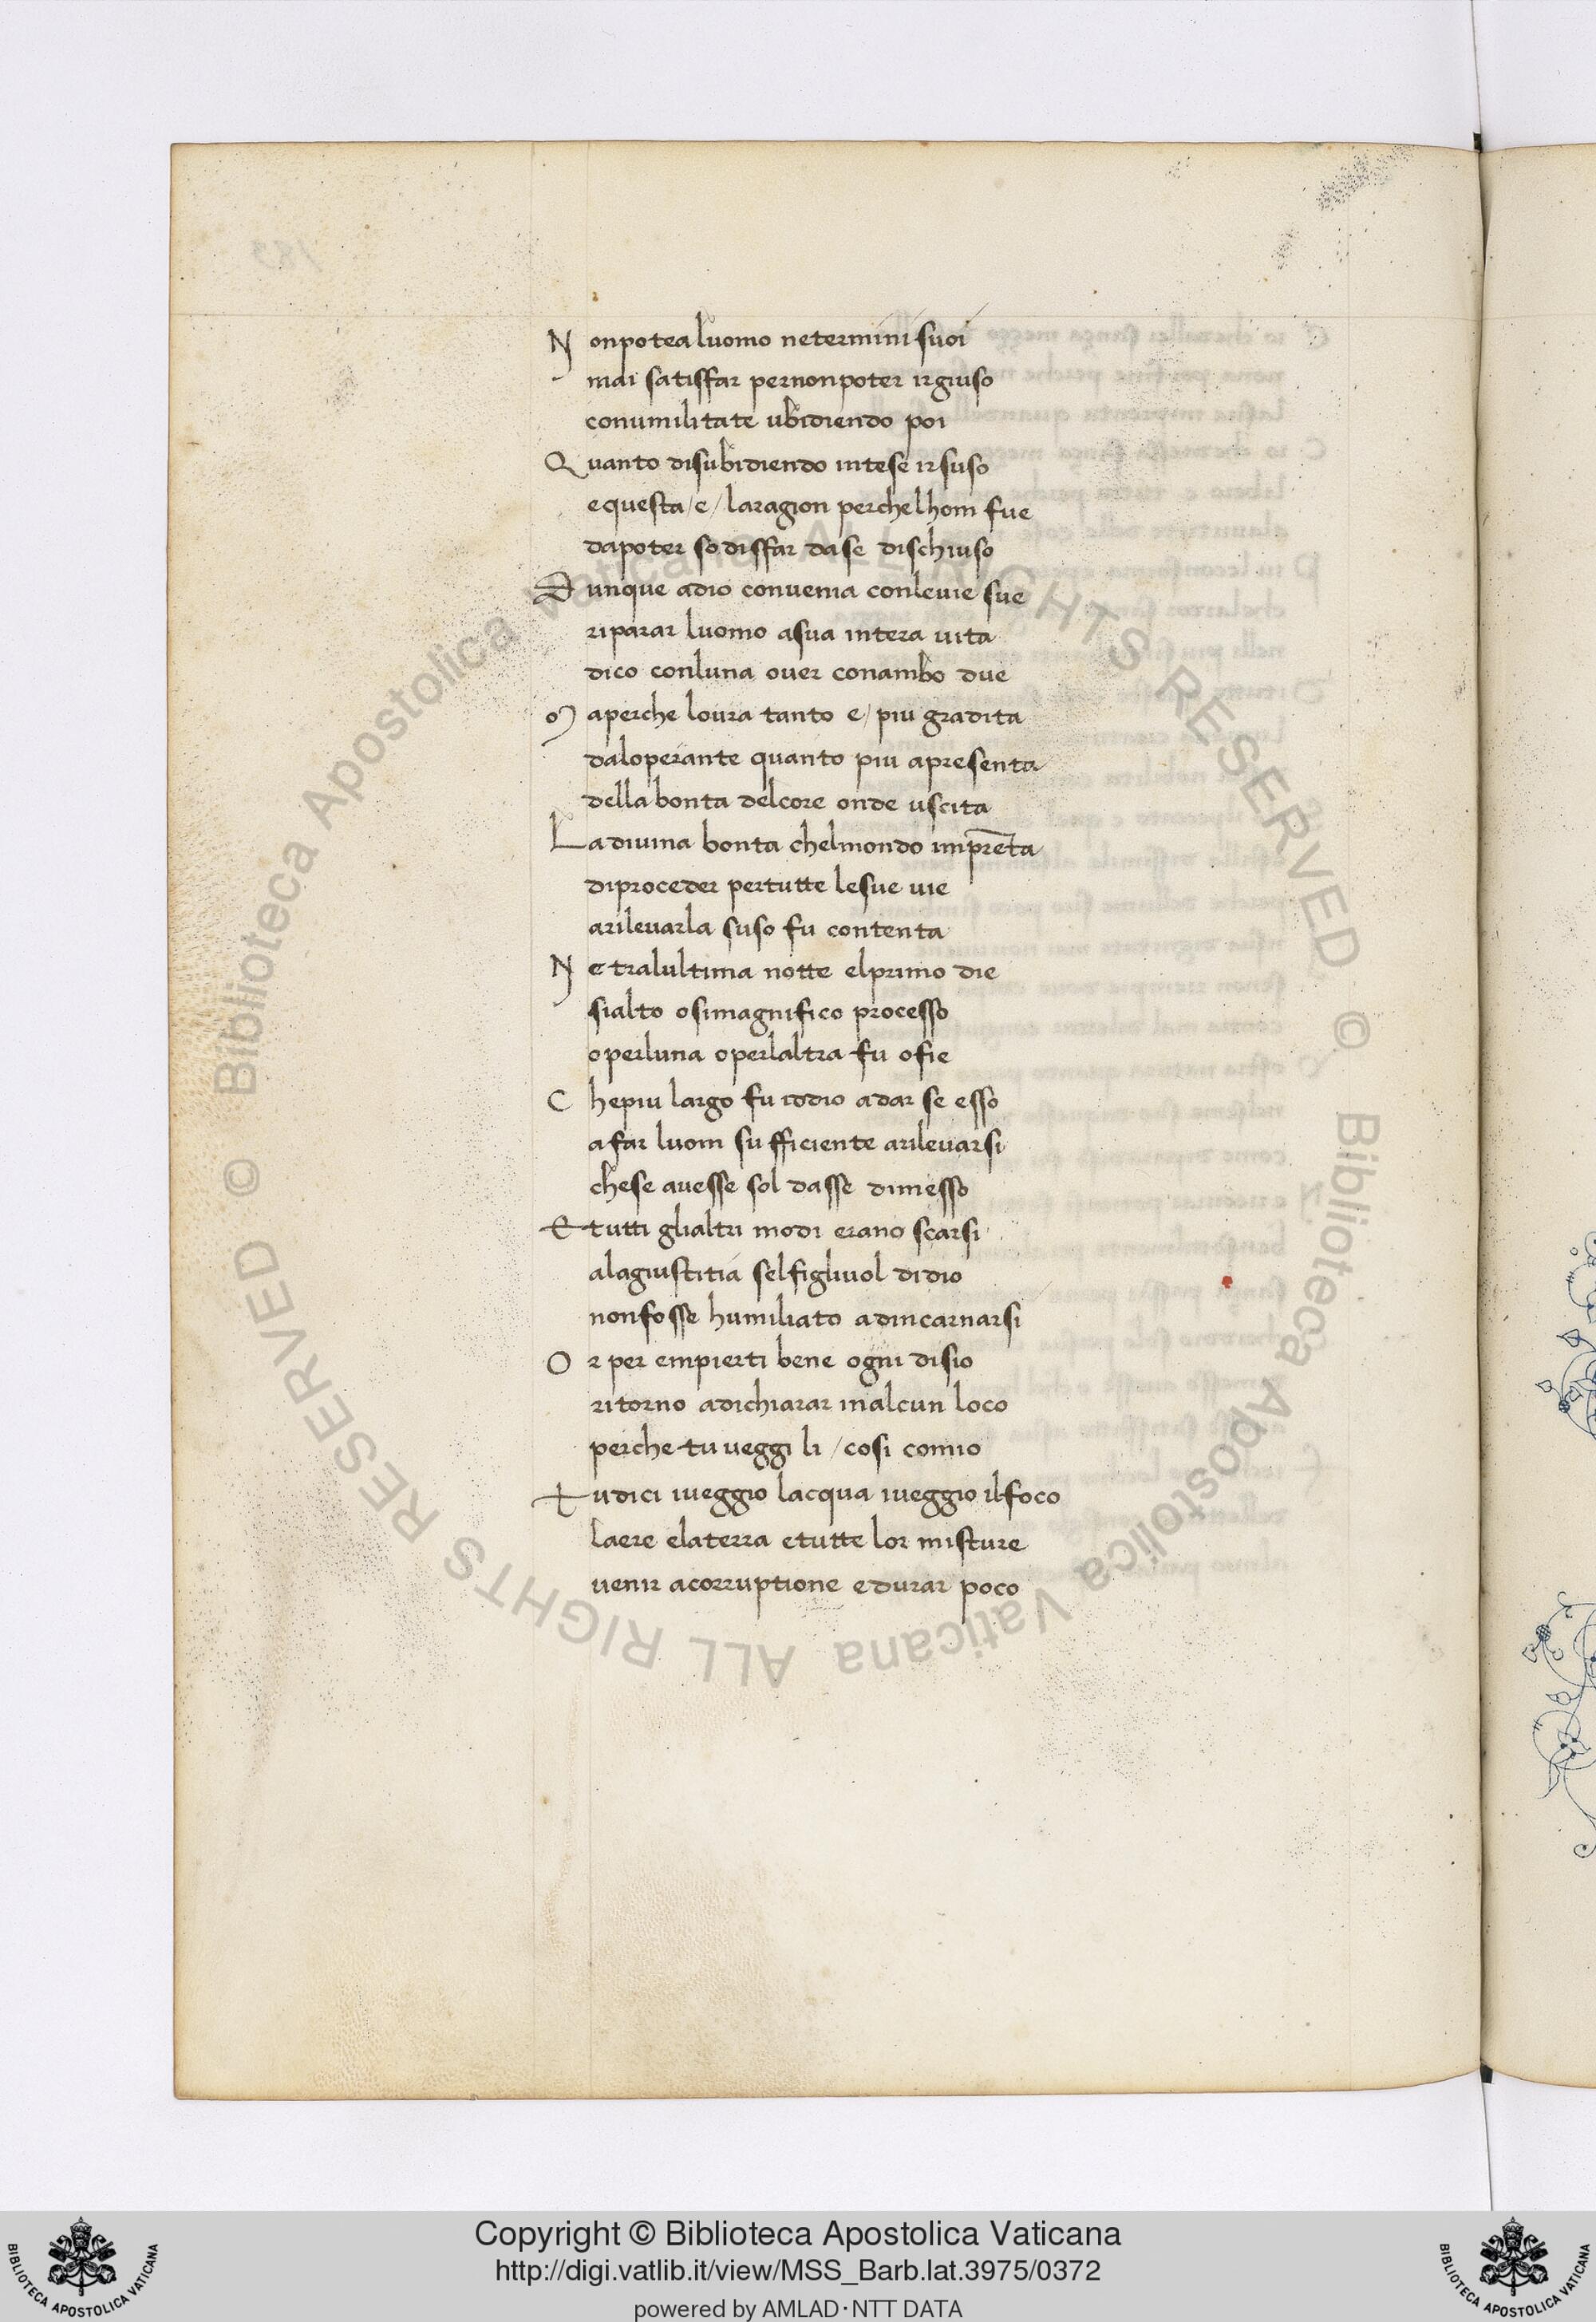 N onpotea luomo netermini suoi
mai satisffar pernonpoter irgiuso
conumilitate ubidiendo poi
Q uanto disubidiendo intese irsuso
equesta/e/laragion perchelhom fue
dapoter sodisffar dase dischiuso
D unque adio convenia conlevie sue
riparar luomo asua intera uita
dico conluna over conambo due
M aperche lovra tanto e/piu gradita
daloperante quanto piu apresenta
della bonta delcore onde uscita
L adiuina bonta chelmondo imprēta
diproceder pertutte lesue uie
arilevarla suso fu contenta
N e tralultima notte elprimo die
sialto osimagnifico processo
operluna operlaltra fu ofie
C hepiu largo fu iddio adar se esso
afar luom sufficiente arilevarsi
chese auesse sol dasse dimesso
E tutti glialtri modi erano scarsi
alagiustitia selfigliuol didio
nonfosse humiliato adincarnarsi
O r per empierti bene ogni disio
ritorno adichiarar inalcun loco
perche tu ueggi li/cosi comio
T udici iueggio lacqua iueggio ilfoco
laere elaterra etutte lor misture
uenir acorruptione edurar poco
Biblioteca Apostolica Vaticana ALL RIGHTS RESERVED ©
Biblioteca Apostolica Vaticana ALL RIGHTS RESERVED ©
Copyright © Biblioteca Apostolica Vaticana
http://digi.vatlib.it/view/MSS_Barb.lat.3975/0372
powered by AMLAD·NTT DATA
BIBLIOTECA APOSTOLICA VATICANA
BIBLIOTECA APOSTOLICA VATICANA